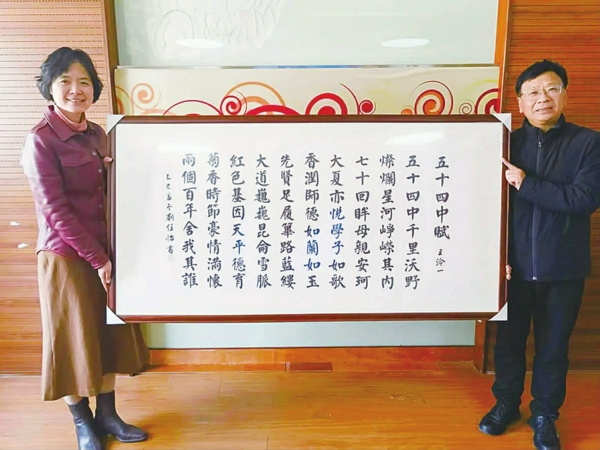 五十四中賦
王泠一
五十四中千里沃野
燦爛星河崢嶸其内
七十回眸母親安珂
大夏亦悦學子如歌
香潤師德如蘭如玉
先賢足履篳路藍縷
大道巍巍昆侖雪脈
紅色基因天平德育
菊香時節豪情滿懷
兩個百年舍我其誰
乙巳 冬劉 怡書